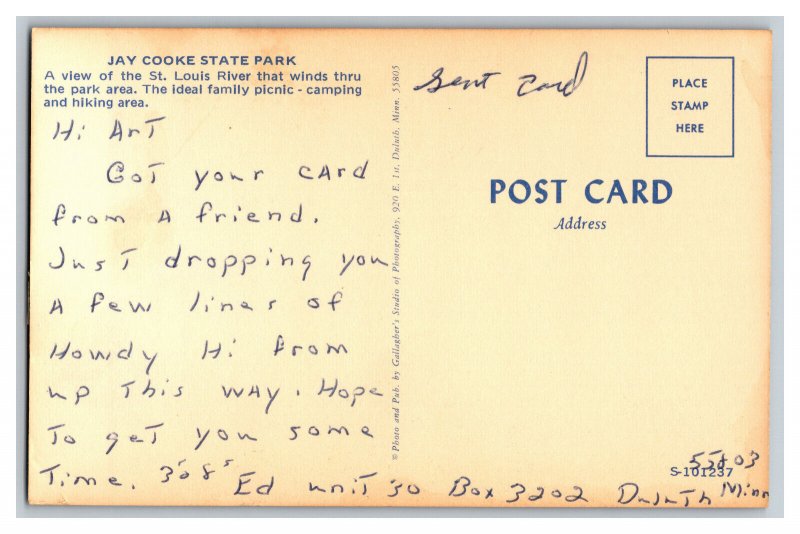 JAY COOKE STATE PARK
A view of the St. Louis River that winds thru
the park area. The ideal family picnic - camping
and hiking area.
Hi Art
Got your card
from a friend.
Just dropping you
a few lines of
Howdy Hi from
up this way. Hope
to get you some
Time.
Ed unit 30 Box 3202 Duluth Minn
55803
© Photo and Pub. by Gallagher's Studio of Photography, 920 E. 1st, Duluth, Minn. 55805
Sent Card
PLACE
STAMP
HERE
POST CARD
Address
S-101237